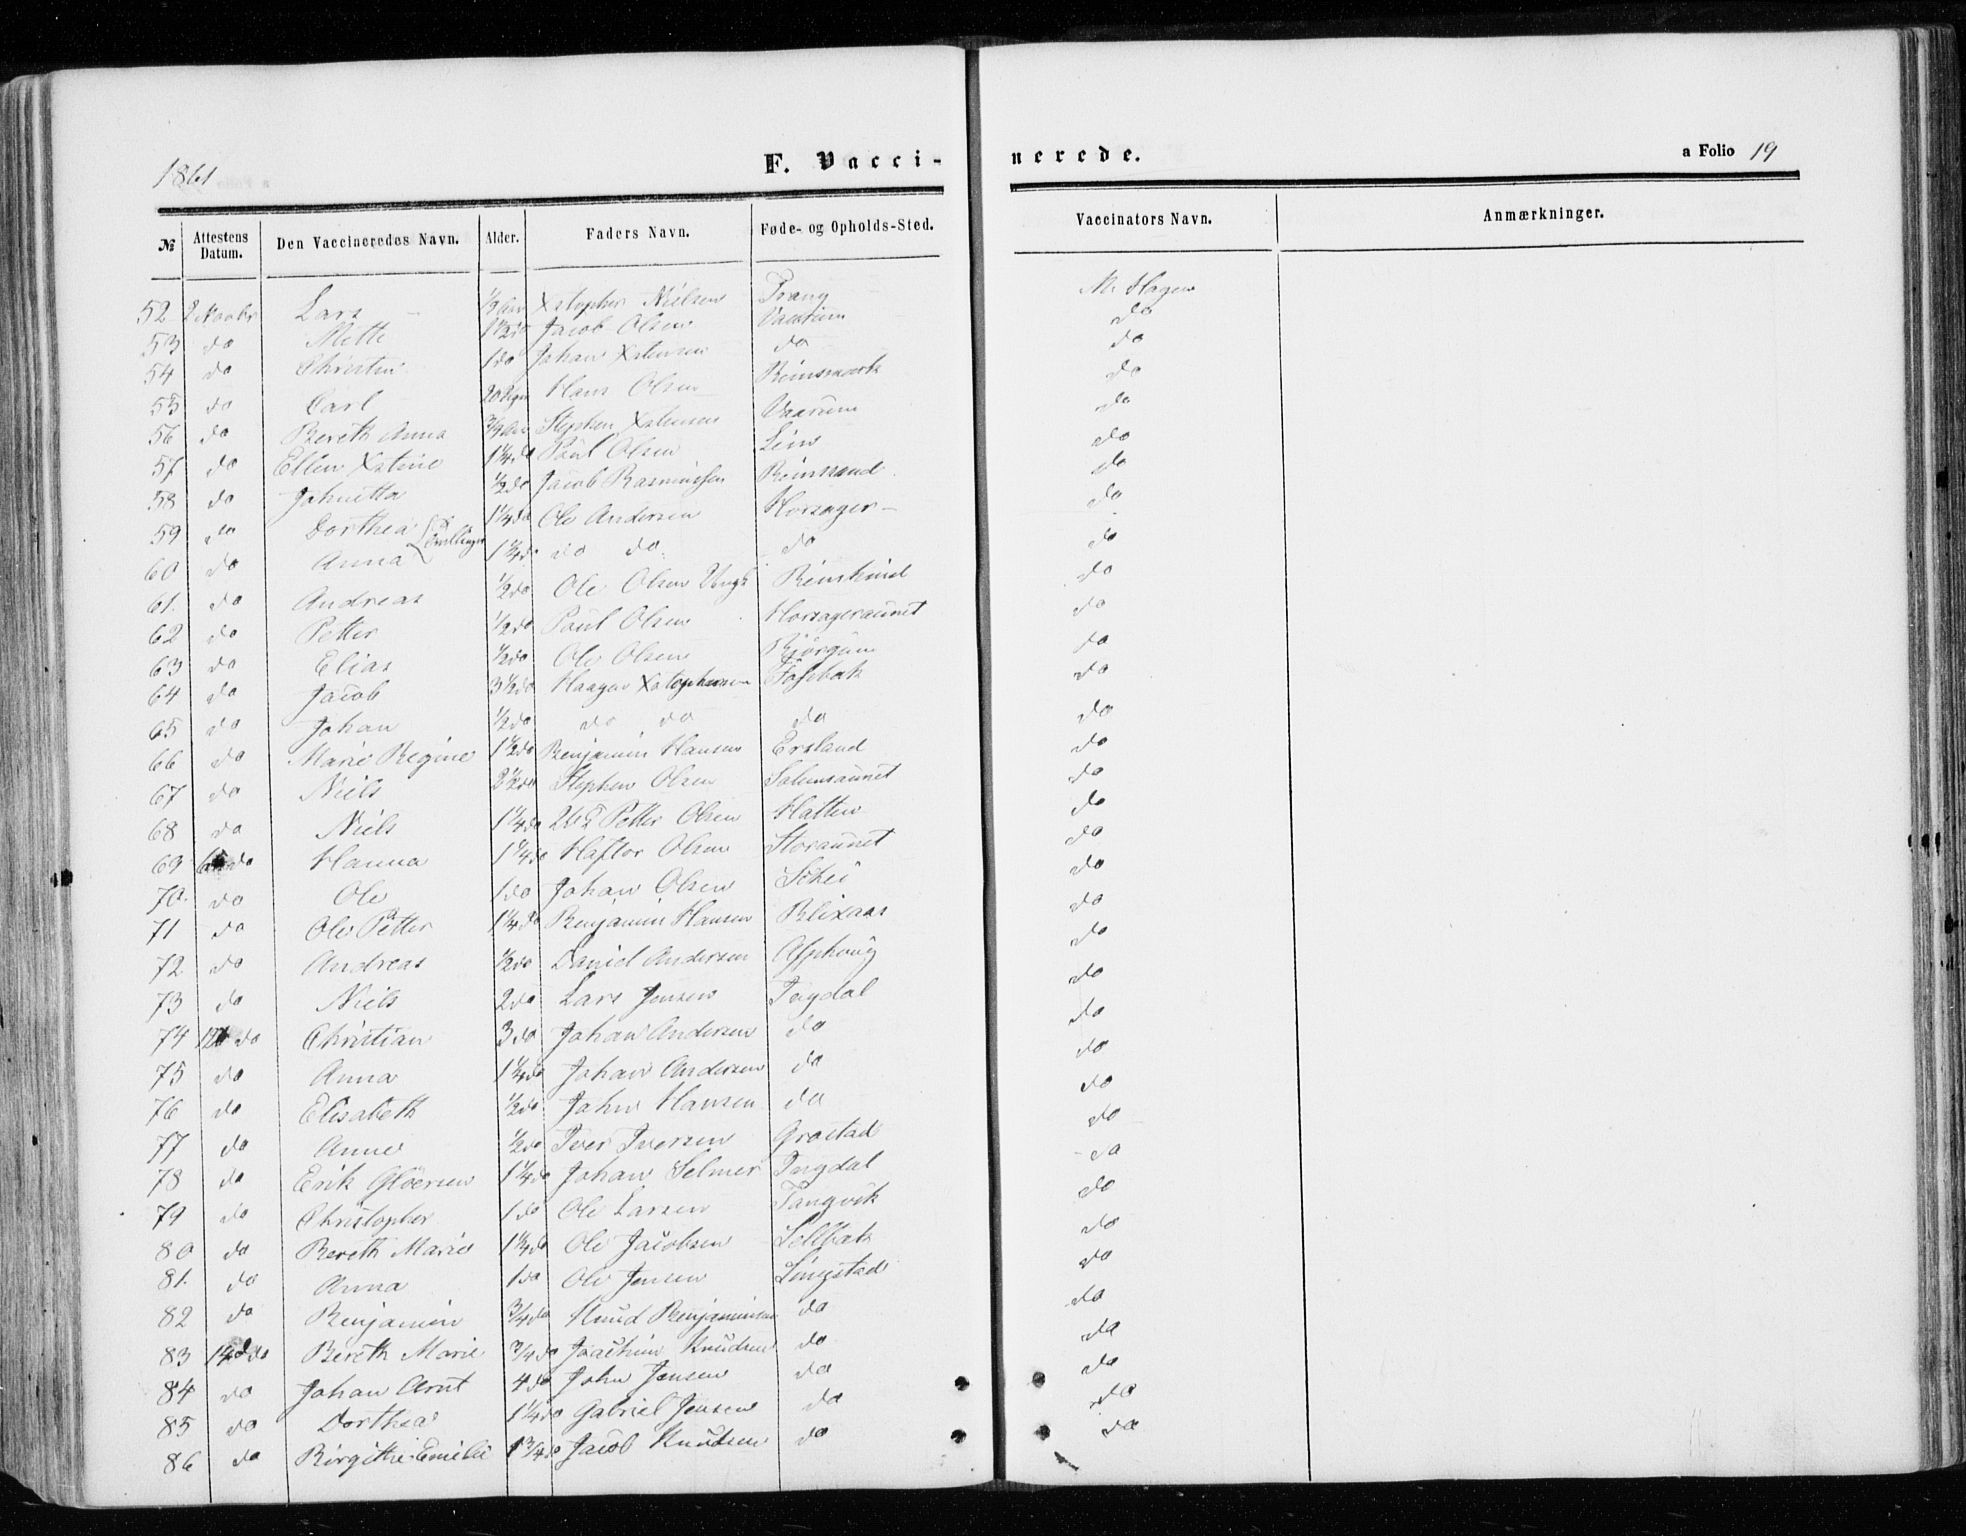 1861 F. Vaccinerede. a Folio 19
№ Attestens Datum. Den Vaccineredes Navn. Alder. Faders Navn. Føde- og Opholds-Sted. Vaccinators Navn. Anmærkninger.
52 2 Novbr Lars 1/3 Aar Xstopher Nielsen Tvang M. Hagen
53 do Mette 1 1/2 do Jacob Olsen Vaarum do
54 do Christin 1 do Johan Xstensen do do
55 do Carl 20 Ugr Hans Olsen do
56 do Bereth Anna 3/4 Aar Stephen Xstensen Vaarum do
57 do Ellen Xstine 1 1/4 do Poul Olsen Lein do
58 do Johnetta 1/2 do Jacob Rasmussen do
59 do Dorthea 1 1/4 do Ole Andersen Horsager do
60 do Anna Tvillinger 1 1/4 do do do do do
61. do Andreas 1/2 do Ole Olsen do
62 do Petter 1/2 do Poul Olsen Horsageraunet do
63 do Elias 1/2 do Ole Olsen Bjørgum do
64 do Jacob 3 1/2 do Haagen Xstophersen Fossbak do
65 do Johan 1/2 do do do do do
66 do Marie Regine 1 1/2 do Benjamin Hansen Ersland do
67 do Niels 2 1/2 do Stephen Olsen do
68 do Niels 1 1/4 do Petter Olsen Hatten do
69 do Hanna 1 1/4 do Haftor Olsen Storaunet do
70. do Ole 1 do Johan Olsen Schei do
71 do Ole Petter 1 1/4 do Benjamin Hansen Blixaas do
72 do Andreas 1/2 do Daniel Andersen Asphoug do
73 do Niels 2 do Lars Jensen Tagdal do
74 12 do Christian 3 do Johan Andersen do do
75 do Anna 1 1/4 do Johan Andersen do do
76 do Elisabeth 1/2 do John Hansen do do
77 do Anne 1/2 do Iver Iversen Grostad do
78 do Erik Gløersen 1 1/4 do Johan Selmer Tagdal do
79 do Christopher 1 do Ole Larsen Tangvik do
80 do Bereth Marie 1 1/4 do Ole Jacobsen Sollbak do
81. do Anna 1 do Ole Jensen Lingstad do
82 do Benjamin 3/4 do Knud Benjaminsen do do
83 14 do Bereth Marie 3/4 do Joachim Knudsen do do
84 do Johan Arnt 4 do John Jensen do do
85 do Dorthea 1 1/4 do Gabriel Jensen do do
86 do Birgithe Emilie 1 3/4 do Jacob Knudsen do do